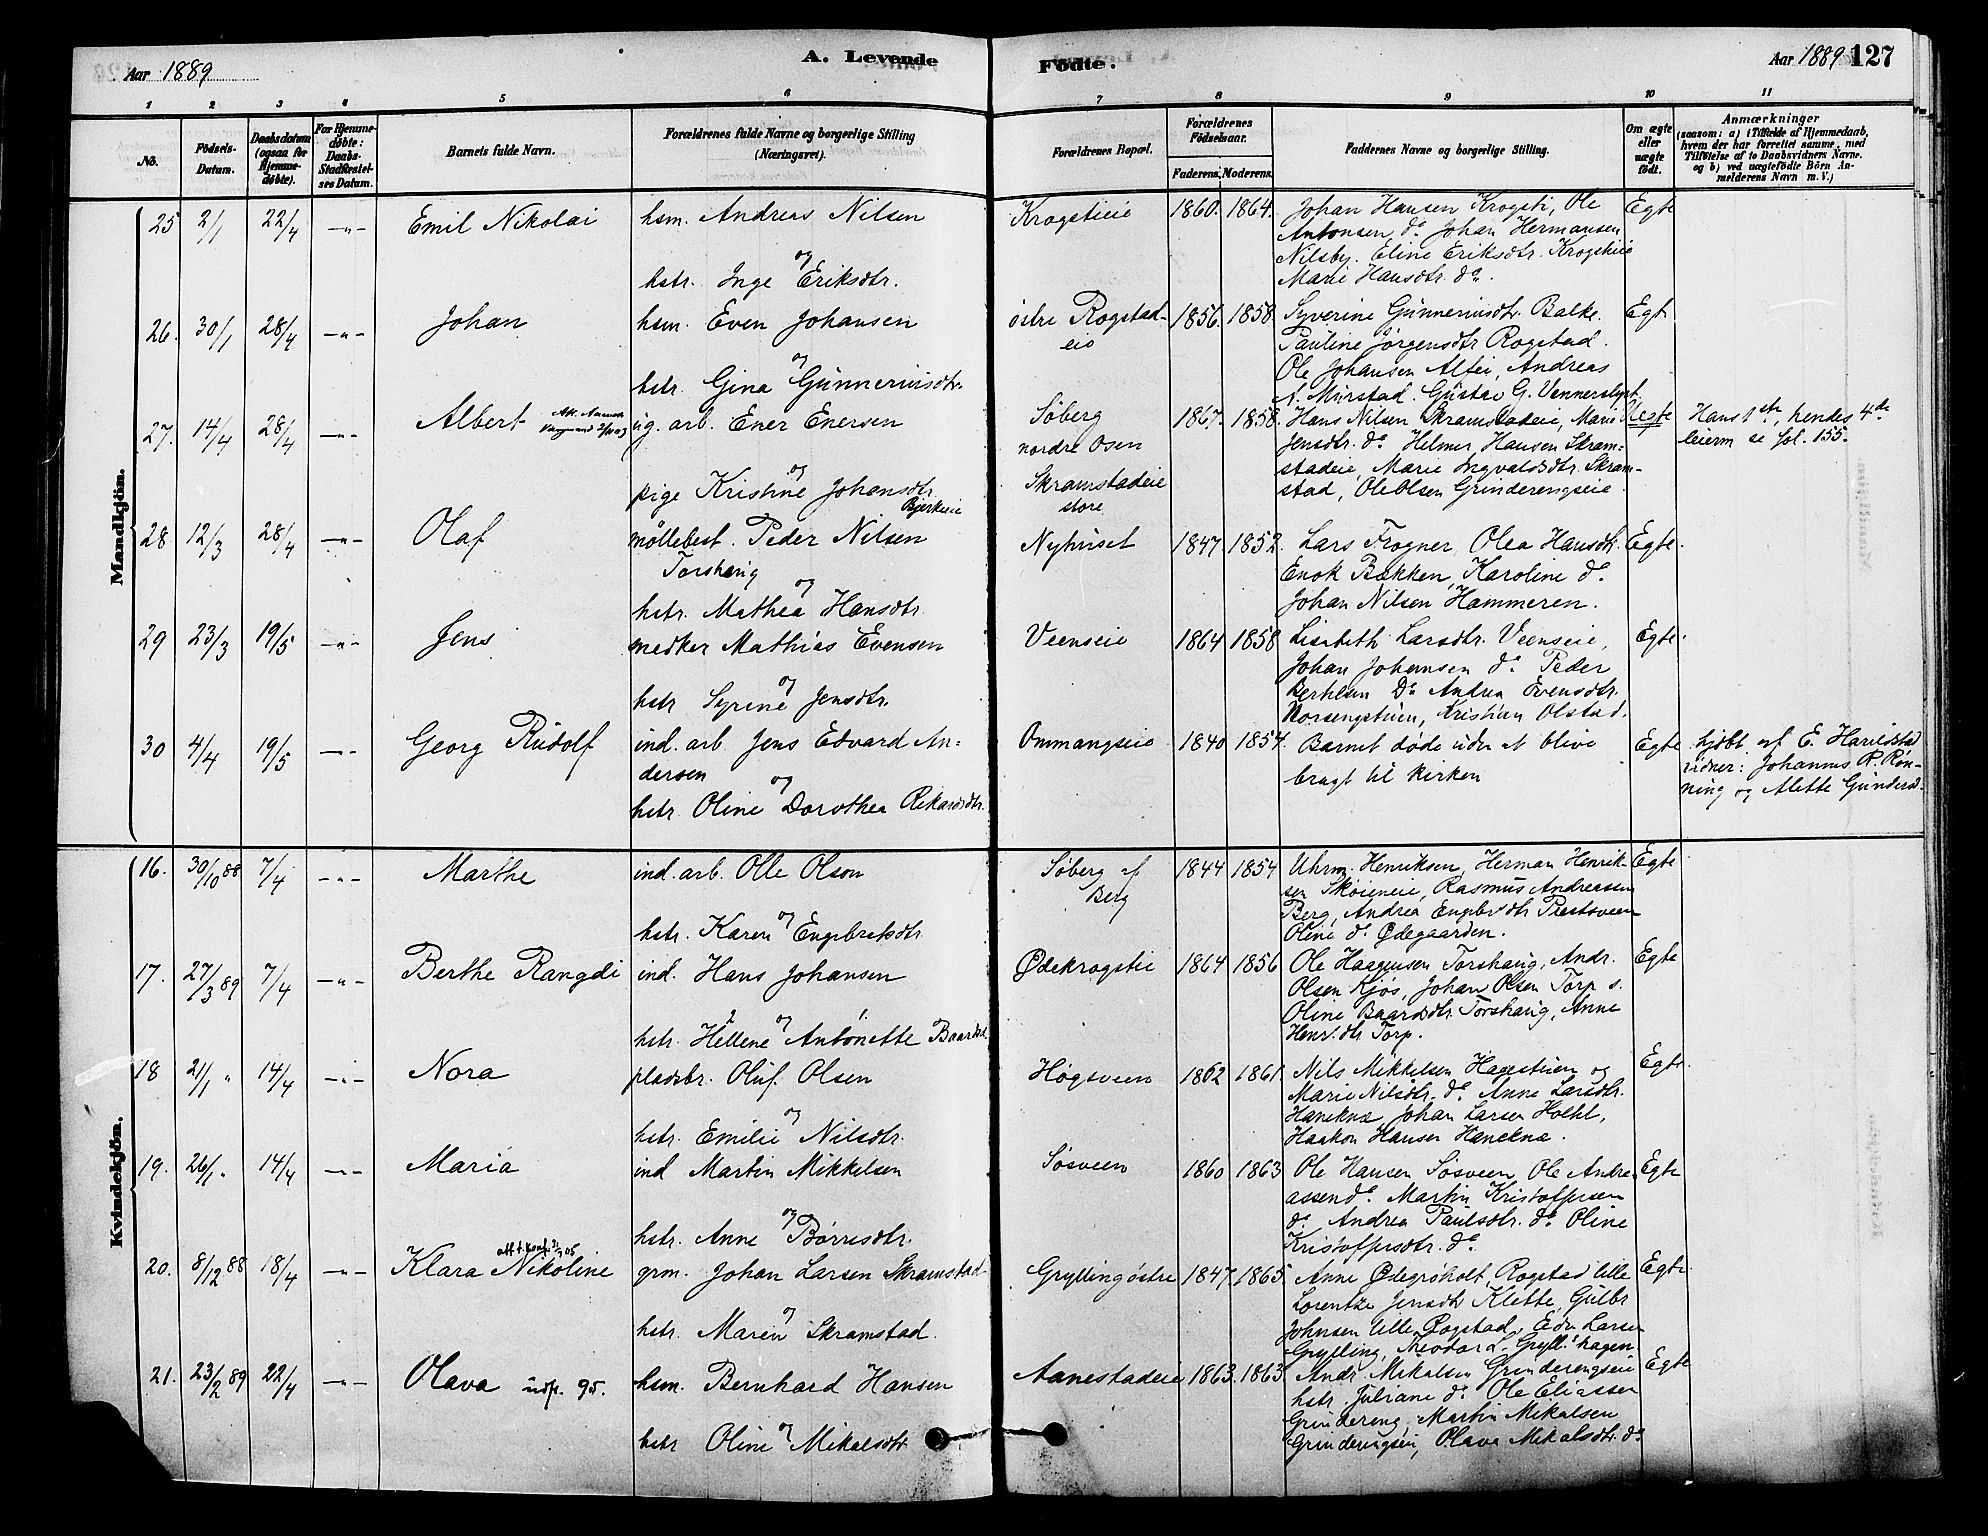 Aar 1889
A. Levende
Fødte.
Aar 1889 127
1 2 3 4 5 6 7 8 9 10 11
No.
Fødsels-
Datum.
Daabsdatum
(ogsaa for
Hjemme-
døbte).
For Hjemme-
døbte:
Daabs-
Stadfæstel-
ses Datum.
Barnets fulde Navn.
Forældrenes fulde Navne og borgerlige Stilling
(Næringsvei).
Forældrenes Bopæl.
Forældrenes
Fødselsaar.
Faderens. Moderens.
Faddernes Navne og borgerlige Stilling.
Om ægte
eller
uægte
født.
Anmærkninger
(saasom: a) i Tilfælde af Hjemmedaab,
hvem der har forrettet samme, med
Tilføielse af to Daabsvidners Navne.
og b) ved uægtefødte Børn An-
melderens Navn m. V.)
Mandkjön.
25 2/1 22/4 -"- Emil Nikolai hsm. Andreas Nilsen
og
hstr. Inge Eriksdtr.
Krogstieie 1860. 1864. Johan Hansen Krogsti, Ole
Antonsen do Johan Hermansen
Nilsby. Eline Eriksdtr. Krogstieie
Marie Hansdtr. do.
Egte
26. 30/1 28/4 -"- Johan hsm. Even Johansen
og
hstr. Gina Gunneriusdtr.
östre Rogstad-
eie
1856. 1858. Syverine Gunneriusdtr. Balke.
Pauline Jörgensdtr Rogstad.
Ole Johansen Alfei, Andreas
A. Murstad. Gustav G. Vennerslyst.
Egt.
27. 14/4 28/4 -"- Albert ug. arb. Ener Enersen
og
pige Kristine Johansdtr.
Bjerkeie
Söberg
nordre Osen
Skramstadeie
store
1867. 1858. Hans Nilsen Skramstadeie, Marie
Jensdtr. do Helmer Hansen Skram-
stadeie, Marie Ingvaldsdtr. Skram-
stad, Ole Olsen Grinderengseie
Uegte
Hans 1ste, hendes 4de
leierm se fol. 155.
28. 12/3 28/4 -"- Olaf møllebest. Peder Nilsen
Torshaug
og
hstr. Mathea Hansdtr.
Nyhuset 1847. 1852. Lars Frogner, Olea Hansdtr.
Enok Bækken, Karoline do.
Johan Nilsen Hammeren.
Egte.
29 23/3 19/5 -"- Jens snedker Mathias Evensen
og
hstr Syrine Jensdtr.
Veenseie 1864 1858 Lisabeth Larsdtr. Veenseie,
Johan Johansen do Peder
Bertelsen Do Andrea Evensdtr.
Korsengstuen, Kristian Olstad.
Egte.
30 4/4 19/5 -"- Georg Rudolf ind. arb. Jens Edvard An-
dersen
og
hstr. Oline Dorothea Rikardsdtr.
Ommangseie 1840 1854. Barnet døde uden at blive
bragt til kirken
Egte
hjdbt. af E. Harildstad
vidner: Johannes R. Røn-
ning og Alette Gundersd.
Kvindekjön.
16. 30/10 88 7/4 -"- Marthe ind. arb. Olle Olsen
og
hstr. Karen Engebretsdtr.
Söberg af
Berg
1844 1854 Uhrm. Henriksen, Herman Henrik-
sen Skøieneie, Rasmus Andreasen
Berg, Andrea Engebrdtr Prestsveen
Oline do Ødegaarden.
Egte
17. 27/3 89 7/4 -"- Berthe Rangdi ind. Hans Johansen
og
hstr. Hellene Antonette Baardsd.
Ødekrogstie 1864 1856 Ole Haagensen Torshaug, Andr.
Olsen Kjøs, Johan Olsen Torp s.
Oline Baardsdtr. Torshaug, Anne
Henr.dtr Torp.
Egte
18 21/1 " 14/4 -"- Nora pladsbr. Oluf Olsen
og
hstr. Emilie Nilsdtr.
Høgsveen 1862 1861. Nils Mikkelsen Hagestuen og
Marie Nilsdtr. do. Anne Larsdtr.
Haneknæ Johan Larsen Hoehl,
Haakon Hansen Haneknæ.
Egte
19. 26/1 " 14/4 -"- Maria ind Martin Mikkelsen
og
hstr. Anne Børresdtr.
Søsveen 1860 1863 Ole Hansen Søsveen, Ole Andre-
assen do. Martin Kristoffersen
do. Andrea Paulsdtr. do Oline
Kristoffersdtr. do
Egte
20. 8/12 88 18/4 -"- Klara Nikoline grm. Johan Larsen Skramstad
og
hstr. Maren Skramstad.
Grylling østre 1847. 1865. Anne Ødegrøholt, Rogstad lille
Lorentze Jensdtr Klette, Gulbr
Johnsen Lille Rogstad, Edv Larsen
Grylling, Theodor L. Gryll. hagen
Egte
21. 23/2 89 22/4 -"- Olava indf. 95. hsm. Bernhard Hansen
og
hstr Oline Mikalsdtr
Aanestadeie 1863. 1863. Andr Mikalsen Grinderengseie
hstr. Juliane do Ole Eliassen
Grindereng, Martin Mikalsen
Grinderengseie, Olava Mikalsdtr. do
Egte